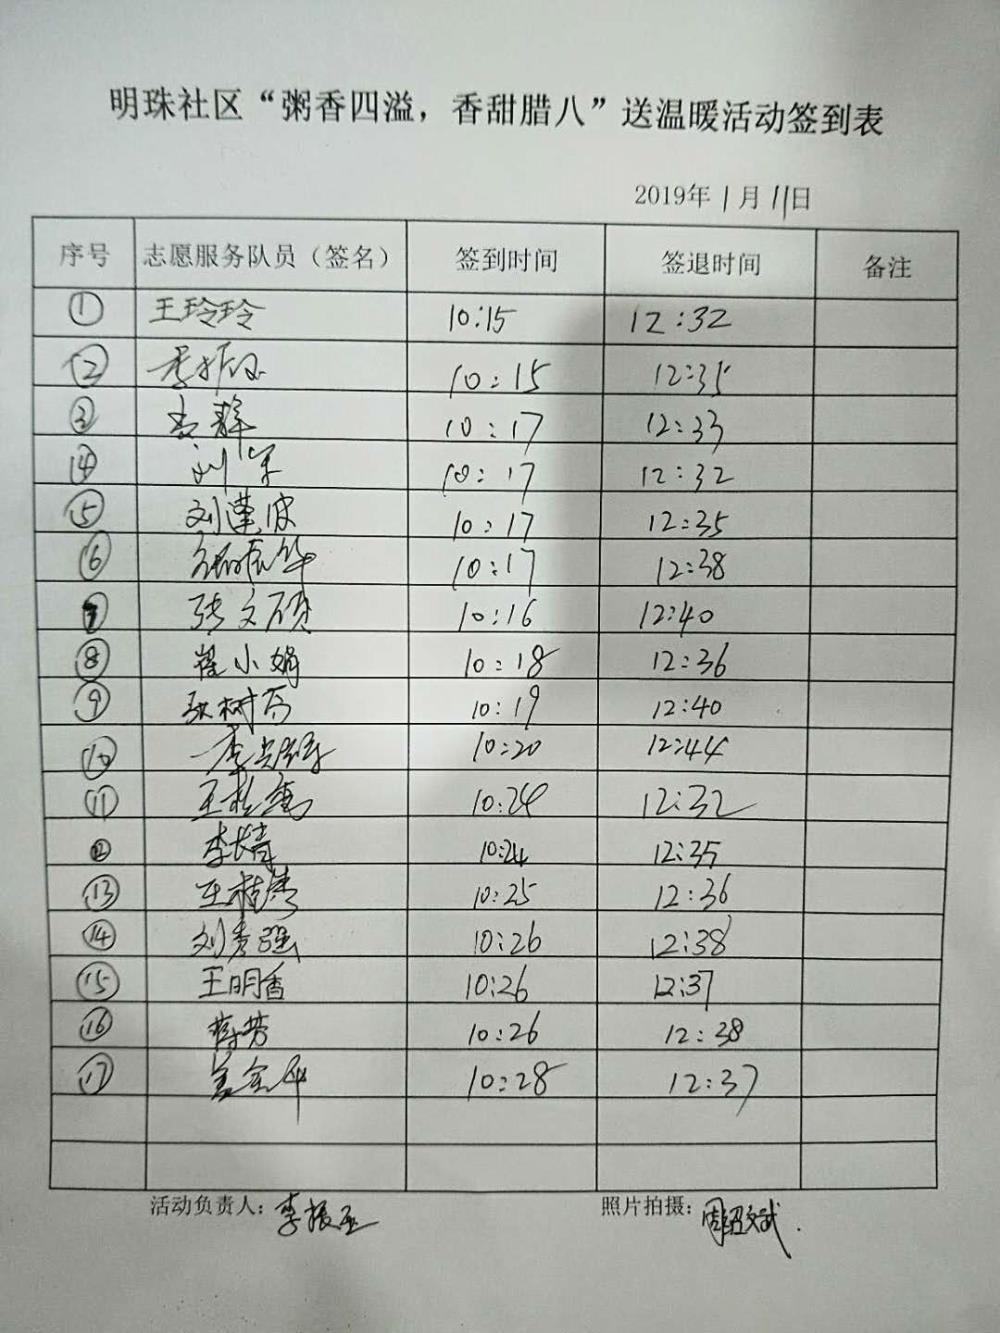 明珠社区“粥香四溢，香甜腊八”送温暖活动签到表
2019年1月11日
序号 志愿服务队员（签名） 签到时间 签退时间 备注
① 王玲玲 10:15 12:32
② 李振玉 10:15 12:35
③ 袁静 10:17 12:33
④ 刘军 10:17 12:32
⑤ 刘莲波 10:17 12:35
⑥ 10:17 12:38
⑦ 张文硕 10:16 12:40
⑧ 崔小娟 10:18 12:36
⑨ 10:19 12:40
⑩ 10:20 12:44
⑪ 10:24 12:32
⑫ 李长青 10:24 12:35
⑬ 王桂秀 10:25 12:36
⑭ 刘秀强 10:26 12:38
⑮ 王明香 10:26 12:37
⑯ 10:26 12:38
⑰ 10:28 12:37
活动负责人：李振玉 照片拍摄：周绍斌